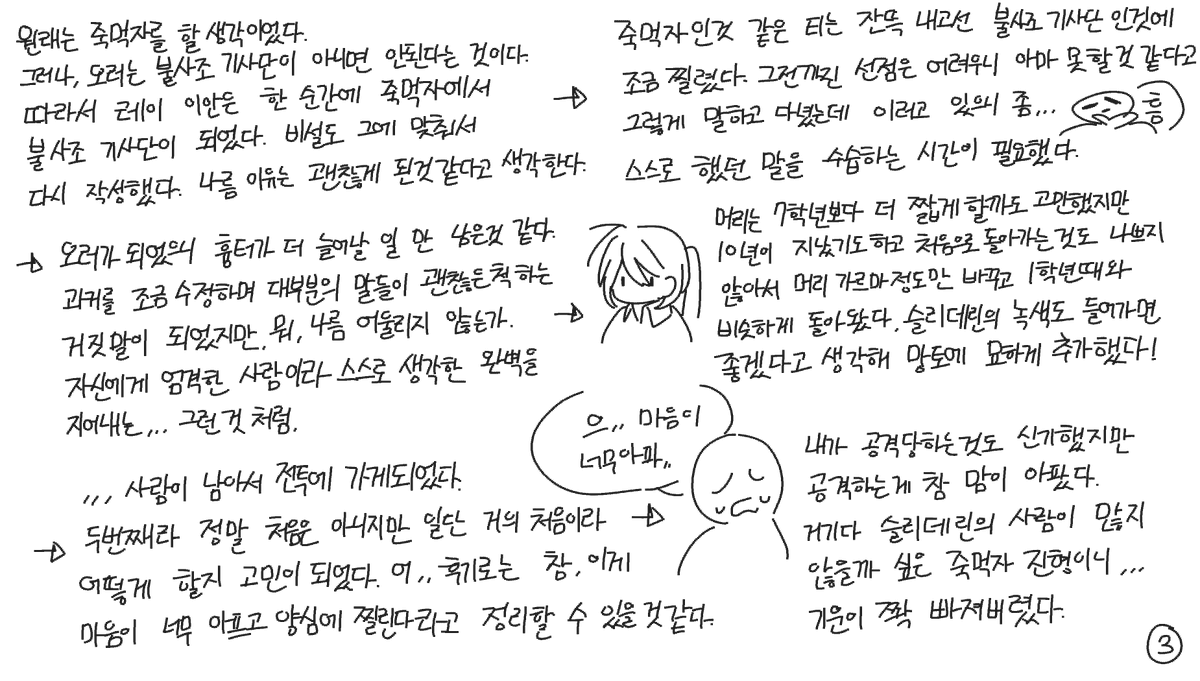 원래는 죽먹자를 할 생각이었다.
그러나, 오러는 불사조 기사단이 아니면 안된다는 것이다.
따라서 코레이 이안은 한 순간에 죽먹자에서
불사조 기사단이 되었다. 비설도 그에 맞춰서
다시 작성했다. 나름 이유는 괜찮게 된것같다고 생각한다.
죽먹자인것 같은 티는 잔뜩 내고선 불사조 기사단 인것에
조금 찔렸다. 그전까진 선점은 어려우니 아마 못할것 같다고
그렇게 말하고 다녔는데 이러고 있으니 좀...
흠
스스로 했던 말을 수습하는 시간이 필요했다.
오러가 되었으니 흉터가 더 늘어날 일 만 남은것 같다.
과거를 조금 수정하며 대부분의 말들이 괜찮은척 하는
거짓말이 되었지만, 뭐, 나름 어울리지 않는가.
자신에게 엄격한 사람이라 스스로 생각한 완벽을
지어내는,.. 그런것 처럼.
머리는 7학년보다 더 짧게 할까도 고민했지만
10년이 지났기도하고 처음으로 돌아가는것도 나쁘지
않아서 머리 가르마정도만 바꾸고 1학년때와
비슷하게 돌아왔다. 슬리데린의 녹색도 들어가면
좋겠다고 생각해 망토에 묘하게 추가했다!
,,, 사람이 남아서 전투에 가게되었다.
두번째라 정말 처음은 아니지만 일단 거의 처음이라
어떻게 할지 고민이 되었다. 어,, 후기로는 참, 이게
마음이 너무 아프고 양심에 찔린다라고 정리할 수 있을것같다.
으,, 마음이
너무아파,,
내가 공격당하는것도 신기했지만
공격하는게 참 맘이 아팠다.
거기다 슬리데린의 사람이 많지
않을까 싶은 죽먹자 진형이니,...
기운이 쫙 빠져버렸다.
3